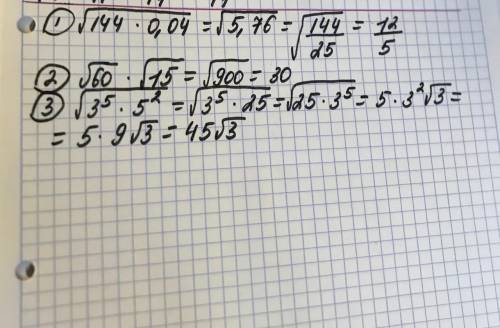 ① √144 · 0,04 = √5,76 = √144/25 = 12/5
② √60 · √15 = √900 = 30
③ √3⁵ · 5² = √3⁵ · 25 = √25 · 3⁵ = 5 · 3²√3 =
= 5 · 9√3 = 45√3